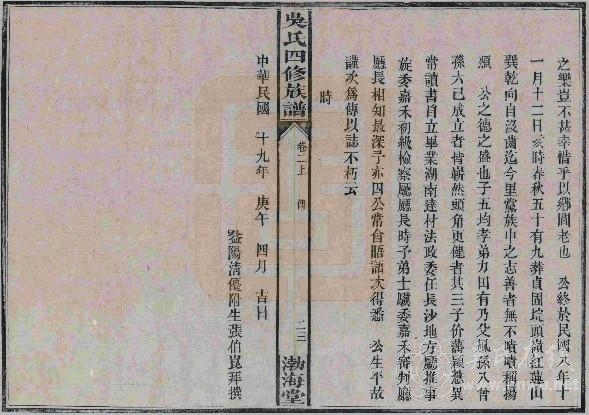 之樂豈不甚幸惜乎以鄉閭老也　公終於民國八年十
一月十二日亥時春秋五十有九葬貞固垸頭嶺紅蓮山
巽乾向自沒齒迄今里黨族中之志善者無不嘖嘖稱揚
頌　公之德之盛也子五均孝弟力田有乃父風孫八曾
孫六已成立者皆嶄然頭角更健者其三子价藩穎慧異
常讀書自立畢業湖南達材法政委任長沙地方廳推事
旋委嘉禾初級檢察廳廳長時子弟士驥委嘉禾審判廳
廳長相知最深予亦因公常會晤語次得悉　公生平故
謹次為傳以誌不朽云
時
中華民國　十九年　庚午　四月　吉日
益陽清優附生張伯崑拜撰
吳氏四修族譜
卷二上　傳
二三
渤海堂